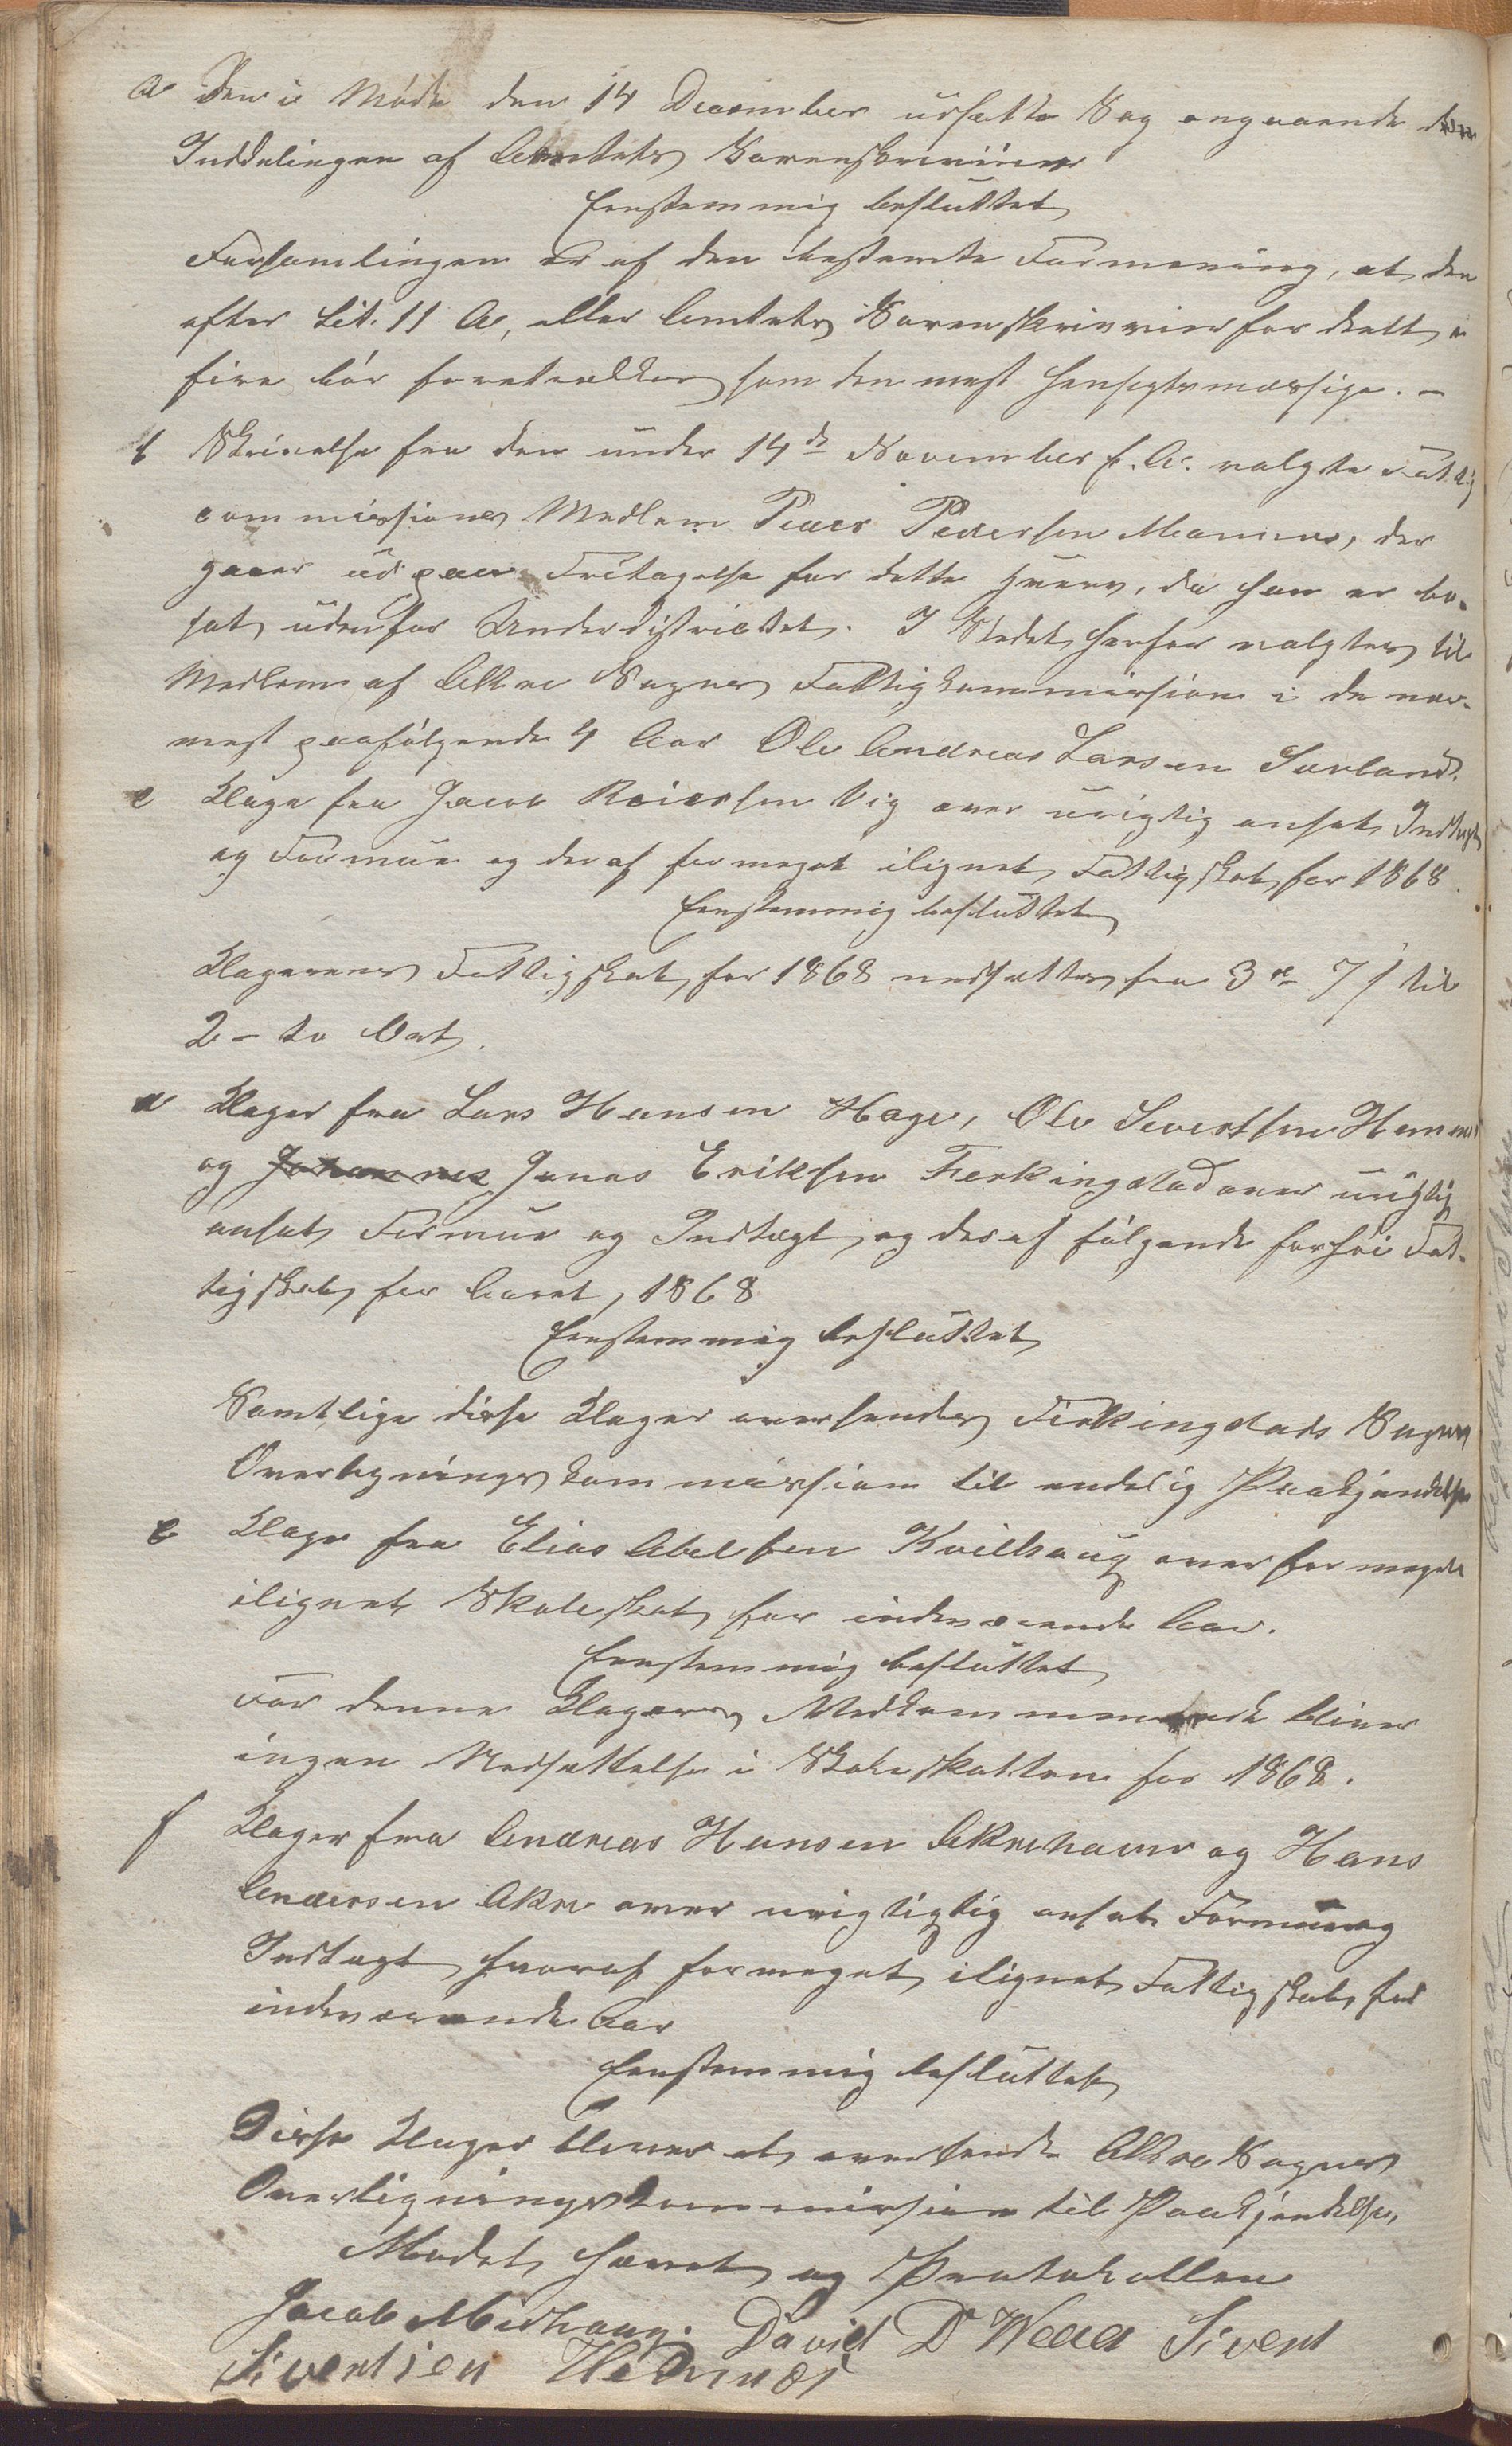 a Den i Møde den 14 December udsatte Sag angaaende
Inddelingen af Amtets Sorenskriverier
Eenstemmig besluttet
Forsamlingen er af den bestemte Formening, at den
efter Lit. 11 A, eller Amtets Sorenskriverier fordeelt i
fire bør foretrækkes som den mest hensigtsmæssige. -
b Skrivelse fra den under 14de November f. A. valgte Fattig
commissions Medlem Peder Pedersen Mannes, der
gaaer ud paa Fritagelse for dette Hverv, da han er bo-
sat udenfor Underdistrictet. I Stedet herfor valgtes til
Medlem af Akre Sogns Fattigkommission i de nær-
mest paafølgende 4 Aar Ole Andreas Larsen Sævland.
c Klage fra Jacob Reiersen Vig over urigtig ansat Indtægt
og Formue og deraf formeget ilignet Fattigskat for 1868.
Eenstemmig besluttet
Klagerens Fattigskat for 1868 nedsættes fra 3 ort 7 s til
2 - to Ort.
d Klager fra Lars Hansen Hage, Ole Sivertsen Hemnes
og Johannes Jonas Eriksen Ferkingstad over urigtig
ansat Formue og Indtægt, og deraf følgende forhøi Fat-
tigskat for Aaret, 1868
Eenstemmig besluttet
Samtlige disse Klager oversendes Ferkingstads Sogns
Overligningskommission til endelig Paakjendelse
e Klage fra Elias Abelsen Kvilhaug over for meget
ilignet Skoleskat for indeværende Aar.
Eenstemmig besluttet
For denne Klagers Vedkommende bliver
ingen Nedsættelse i Skoleskatten for 1868.
f Klager fra Andreas Hansen Akrehavn og Hans
Andersen Akre over urigtigtig ansat Formue og
Indtægt hvoraf formeget ilignet Fattigskat for
indeværende Aar
Eenstemmig besluttet
Disse Klager bliver at oversende Akre Sogns
Overligningskommission til Paakjendelse,
Mødet hævet og Protokollen
Jacob Midhaug. David D Weaa Sivert
Sivertsen Hemnes